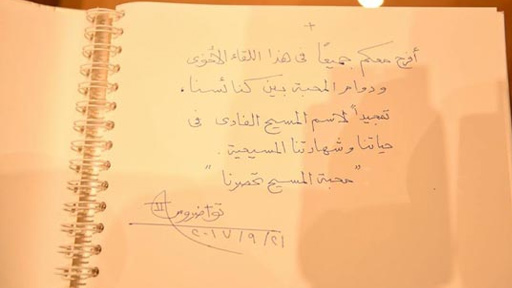 +
أفرح معكم جميعًا فى هذا اللقاء الأخوى
ودوام المحبة بين كنائسنا .
تمجيداً لاسم المسيح الفادى فى
حياتنا وشهادتنا المسيحية .
"محبة المسيح تحصرنا"
تواضروس II
٢٠١٧/٩/٢١